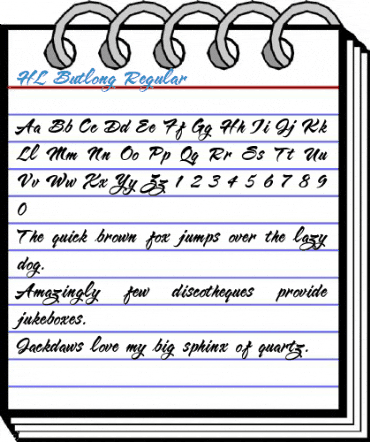 HL Butlong Regular
Aa Bb Cc Dd Ee Ff Gg Hh Ii Jj Kk
Ll Mm Nn Oo Pp Qq Rr Ss Tt Uu
Vv Ww Xx Yy Zz 1 2 3 4 5 6 7 8 9
0
The quick brown fox jumps over the lazy
dog.
Amazingly few discotheques provide
jukeboxes.
Jackdaws love my big sphinx of quartz.